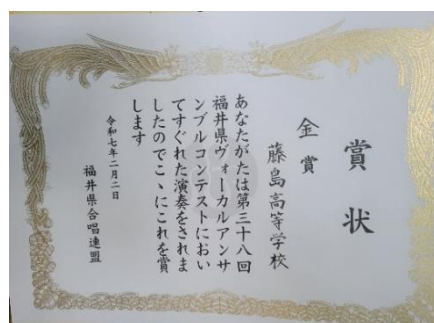 賞状
金賞
藤島高等学校
あなたがたは第三十八回
福井県ヴォーカルアンサ
ンブルコンテストにおい
てすぐれた演奏をされま
したのでこゝにこれを賞
します
令和七年二月二日
福井県合唱連盟